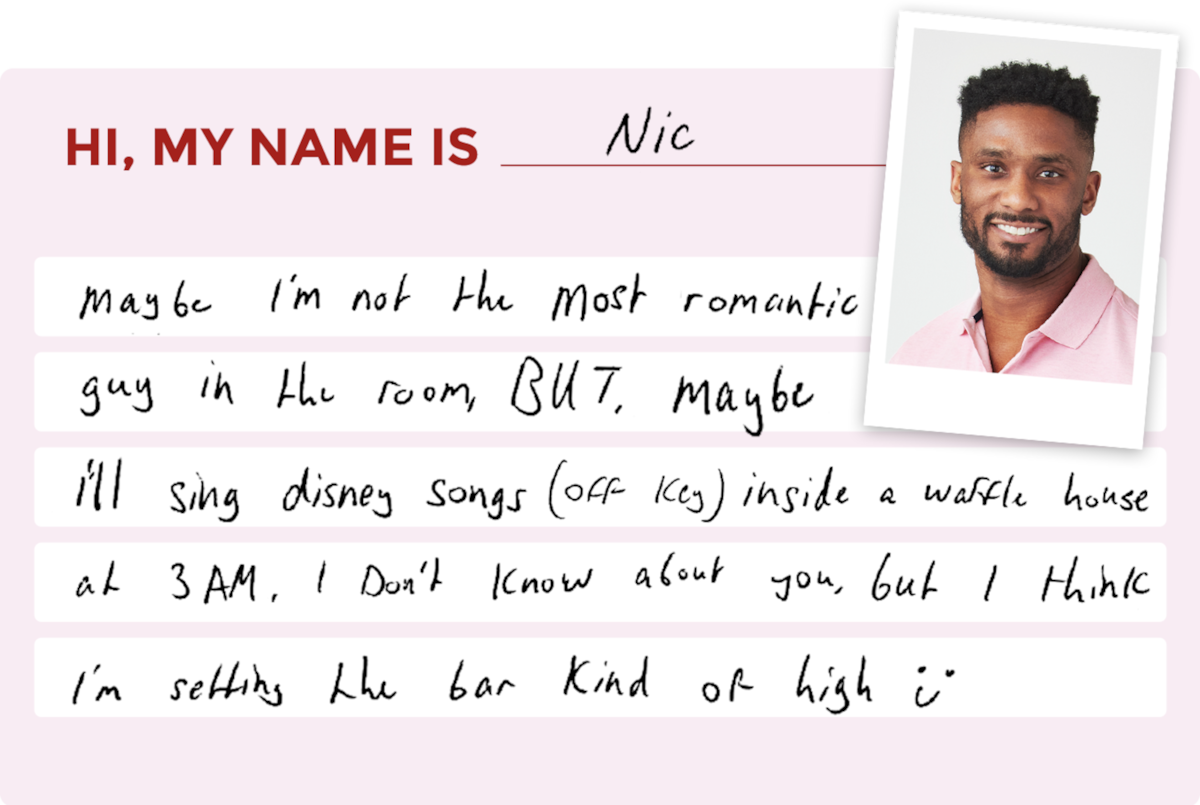 HI, MY NAME IS Nic
Maybe I'm not the most romantic
guy in the room, BUT, maybe
i'll sing disney songs (off key) inside a waffle house
at 3 AM. I Don't know about you, but I think
I'm setting the bar kind of high :)